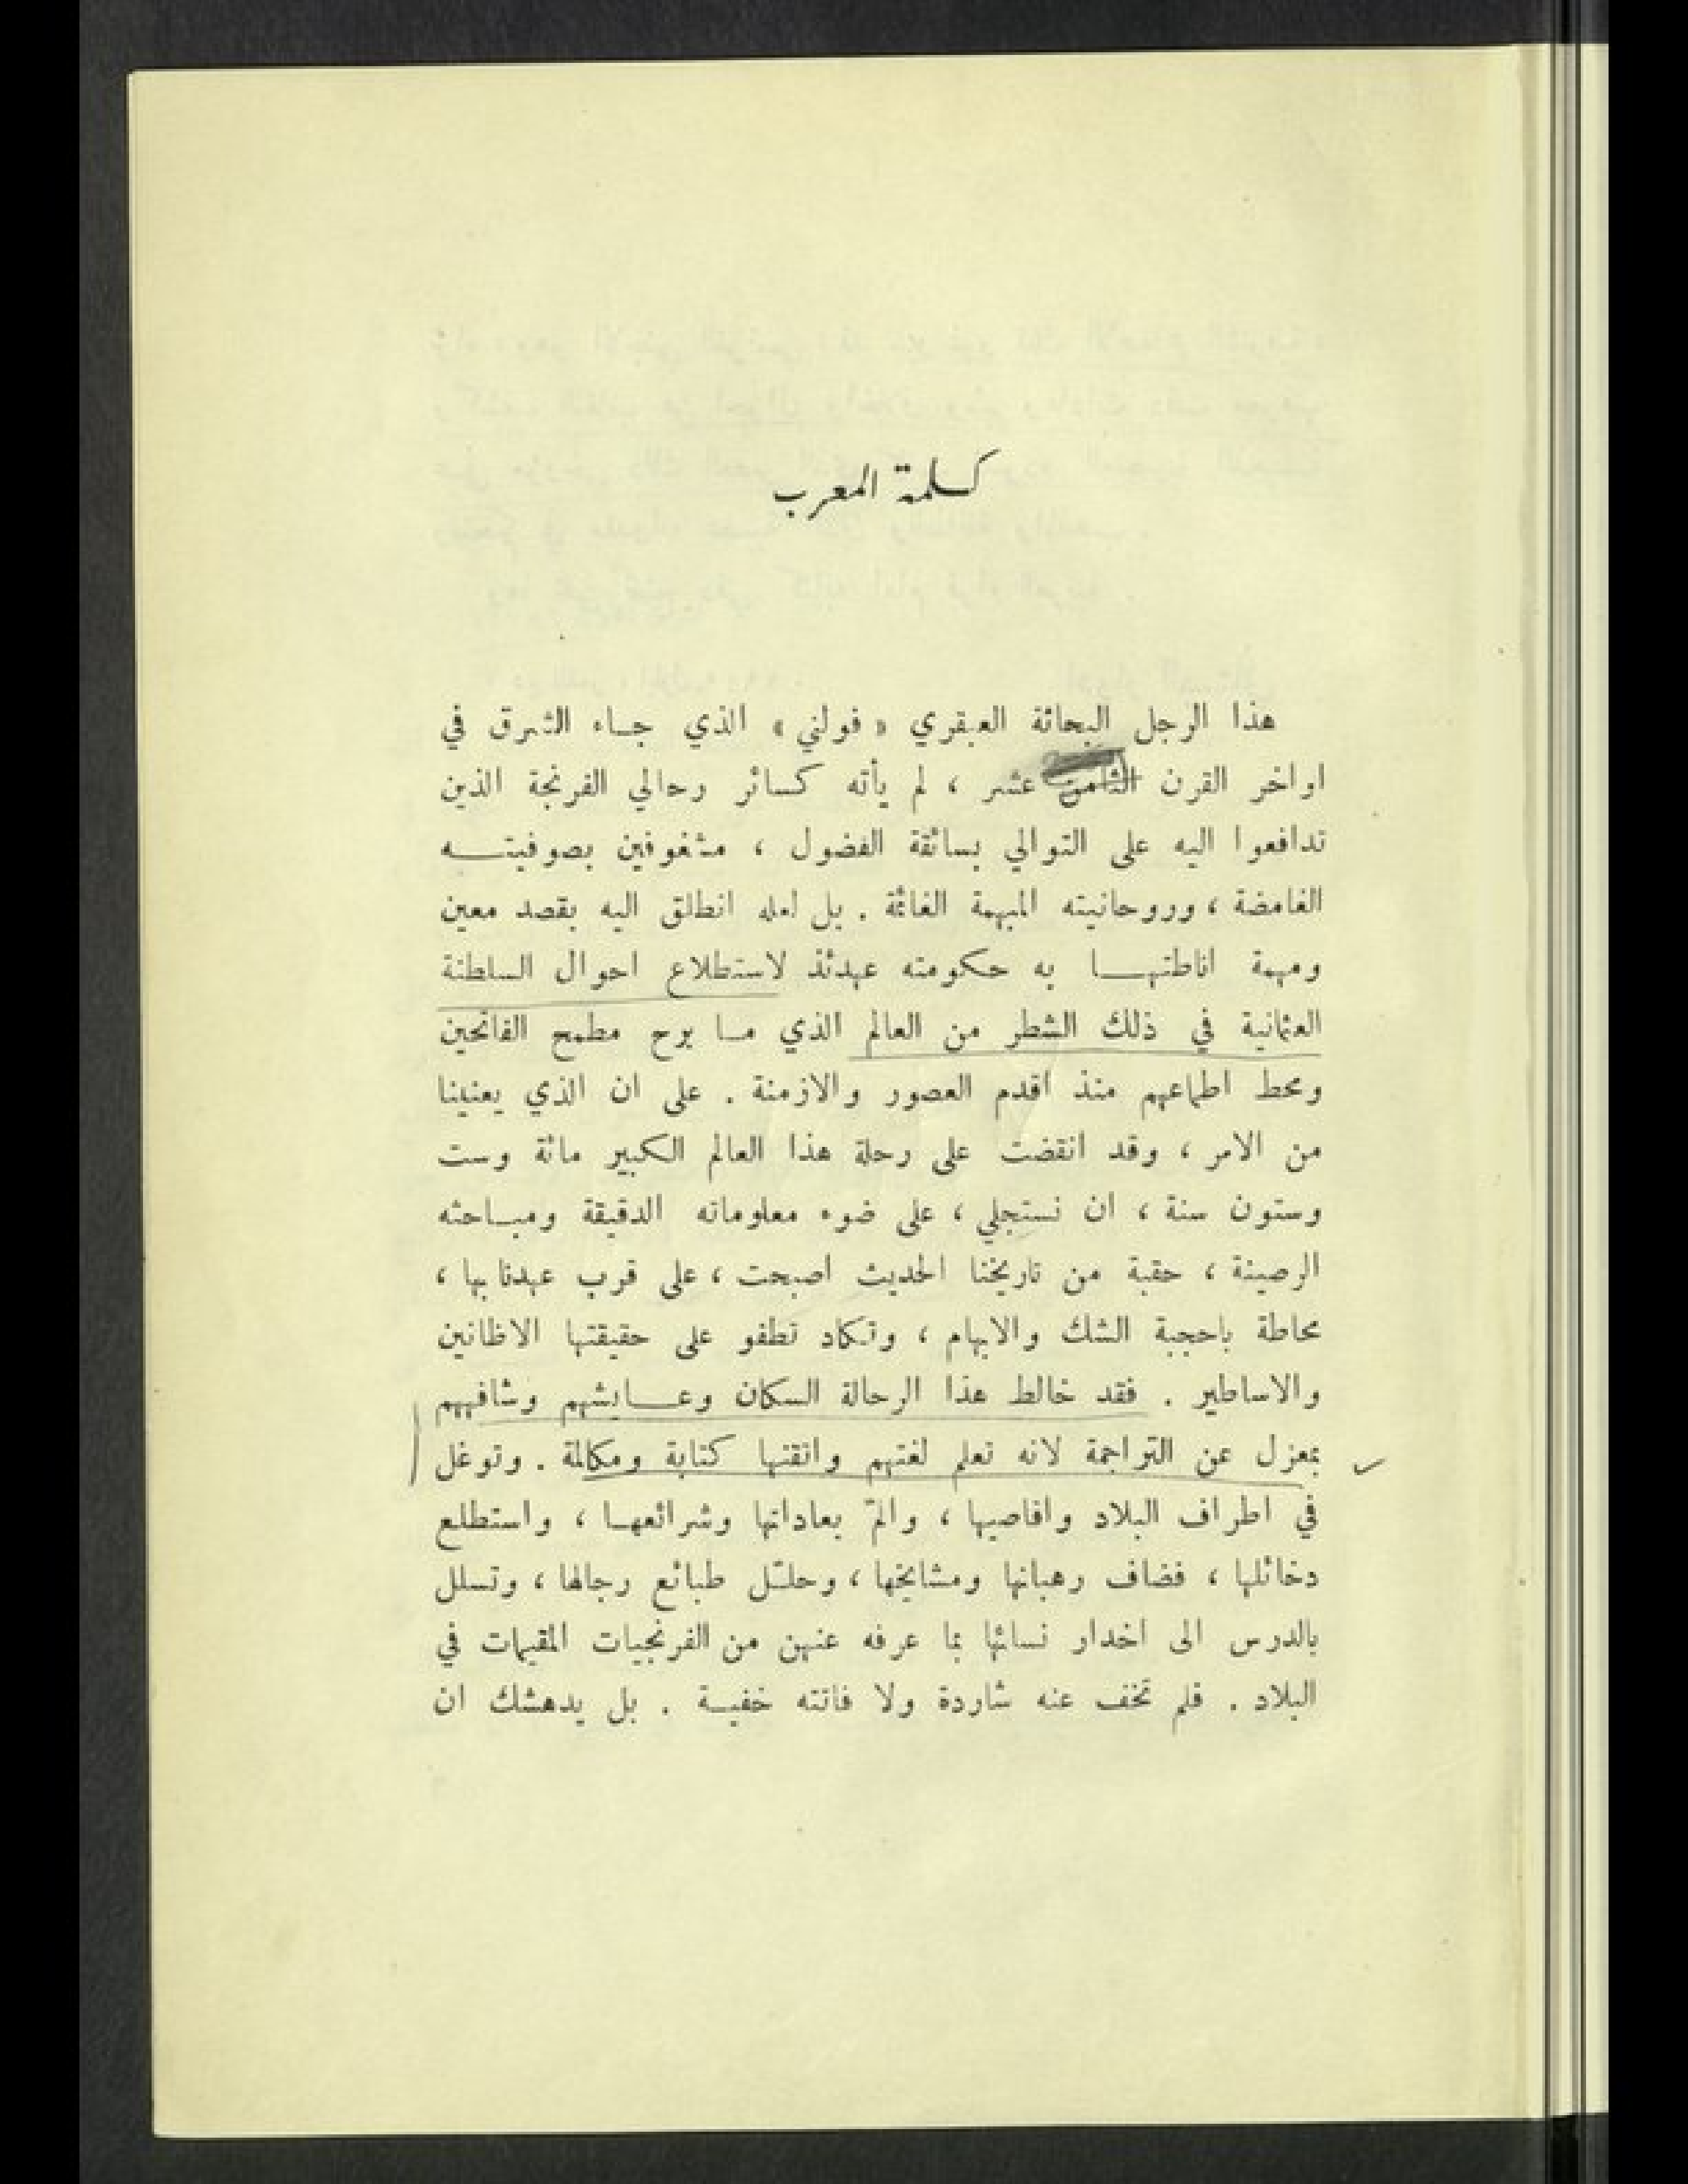 كلمة المعرب
هذا الرجل البحاثة العبقري « فولني » الذي جاء الشرق في
اواخر القرن الثامن عشر ، لم يأته كسائر رحالي الفرنجة الذين
تدافعوا اليه على التوالي بسائقة الفضول ، مشغوفين بصوفيته
الغامضة ، وروحانيته المبهمة الغائمة . بل لعله انطلق اليه بقصد معين
ومهمة اناطتها به حكومته عهدئذ لاستطلاع احوال السلطنة
العثمانية في ذلك الشطر من العالم الذي ما برح مطمح الفاتحين
ومحط اطماعهم منذ اقدم العصور والازمنة . على ان الذي يعنينا
من الامر ، وقد انقضت على رحلة هذا العالم الكبير مائة وست
وستون سنة ، ان نستجلي ، على ضوء معلوماته الدقيقة ومباحثه
الرصينة ، حقبة من تاريخنا الحديث اصبحت ، على قرب عهدنا بها ،
محاطة باحجبة الشك والابهام ، وتكاد تطفو على حقيقتها الاظانين
والاساطير . فقد خالط هذا الرحالة السكان وعايشهم وشافههم
بمعزل عن التراجمة لانه تعلم لغتهم واتقنها كتابة ومكالمة . وتوغل
في اطراف البلاد واقاصيها ، والمّ بعاداتها وشرائعها ، واستطلع
دخائلها ، فضاف رهبانها ومشايخها ، وحلّل طبائع رجالها ، وتسلل
بالدرس الى اخدار نسائها بما عرفه عنهن من الفرنجيات المقيمات في
البلاد . فلم تخف عنه شاردة ولا فاتته خفية . بل يدهشك ان